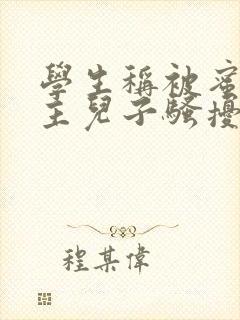 學生稱被蜜
主兒子騷擾
程某偉